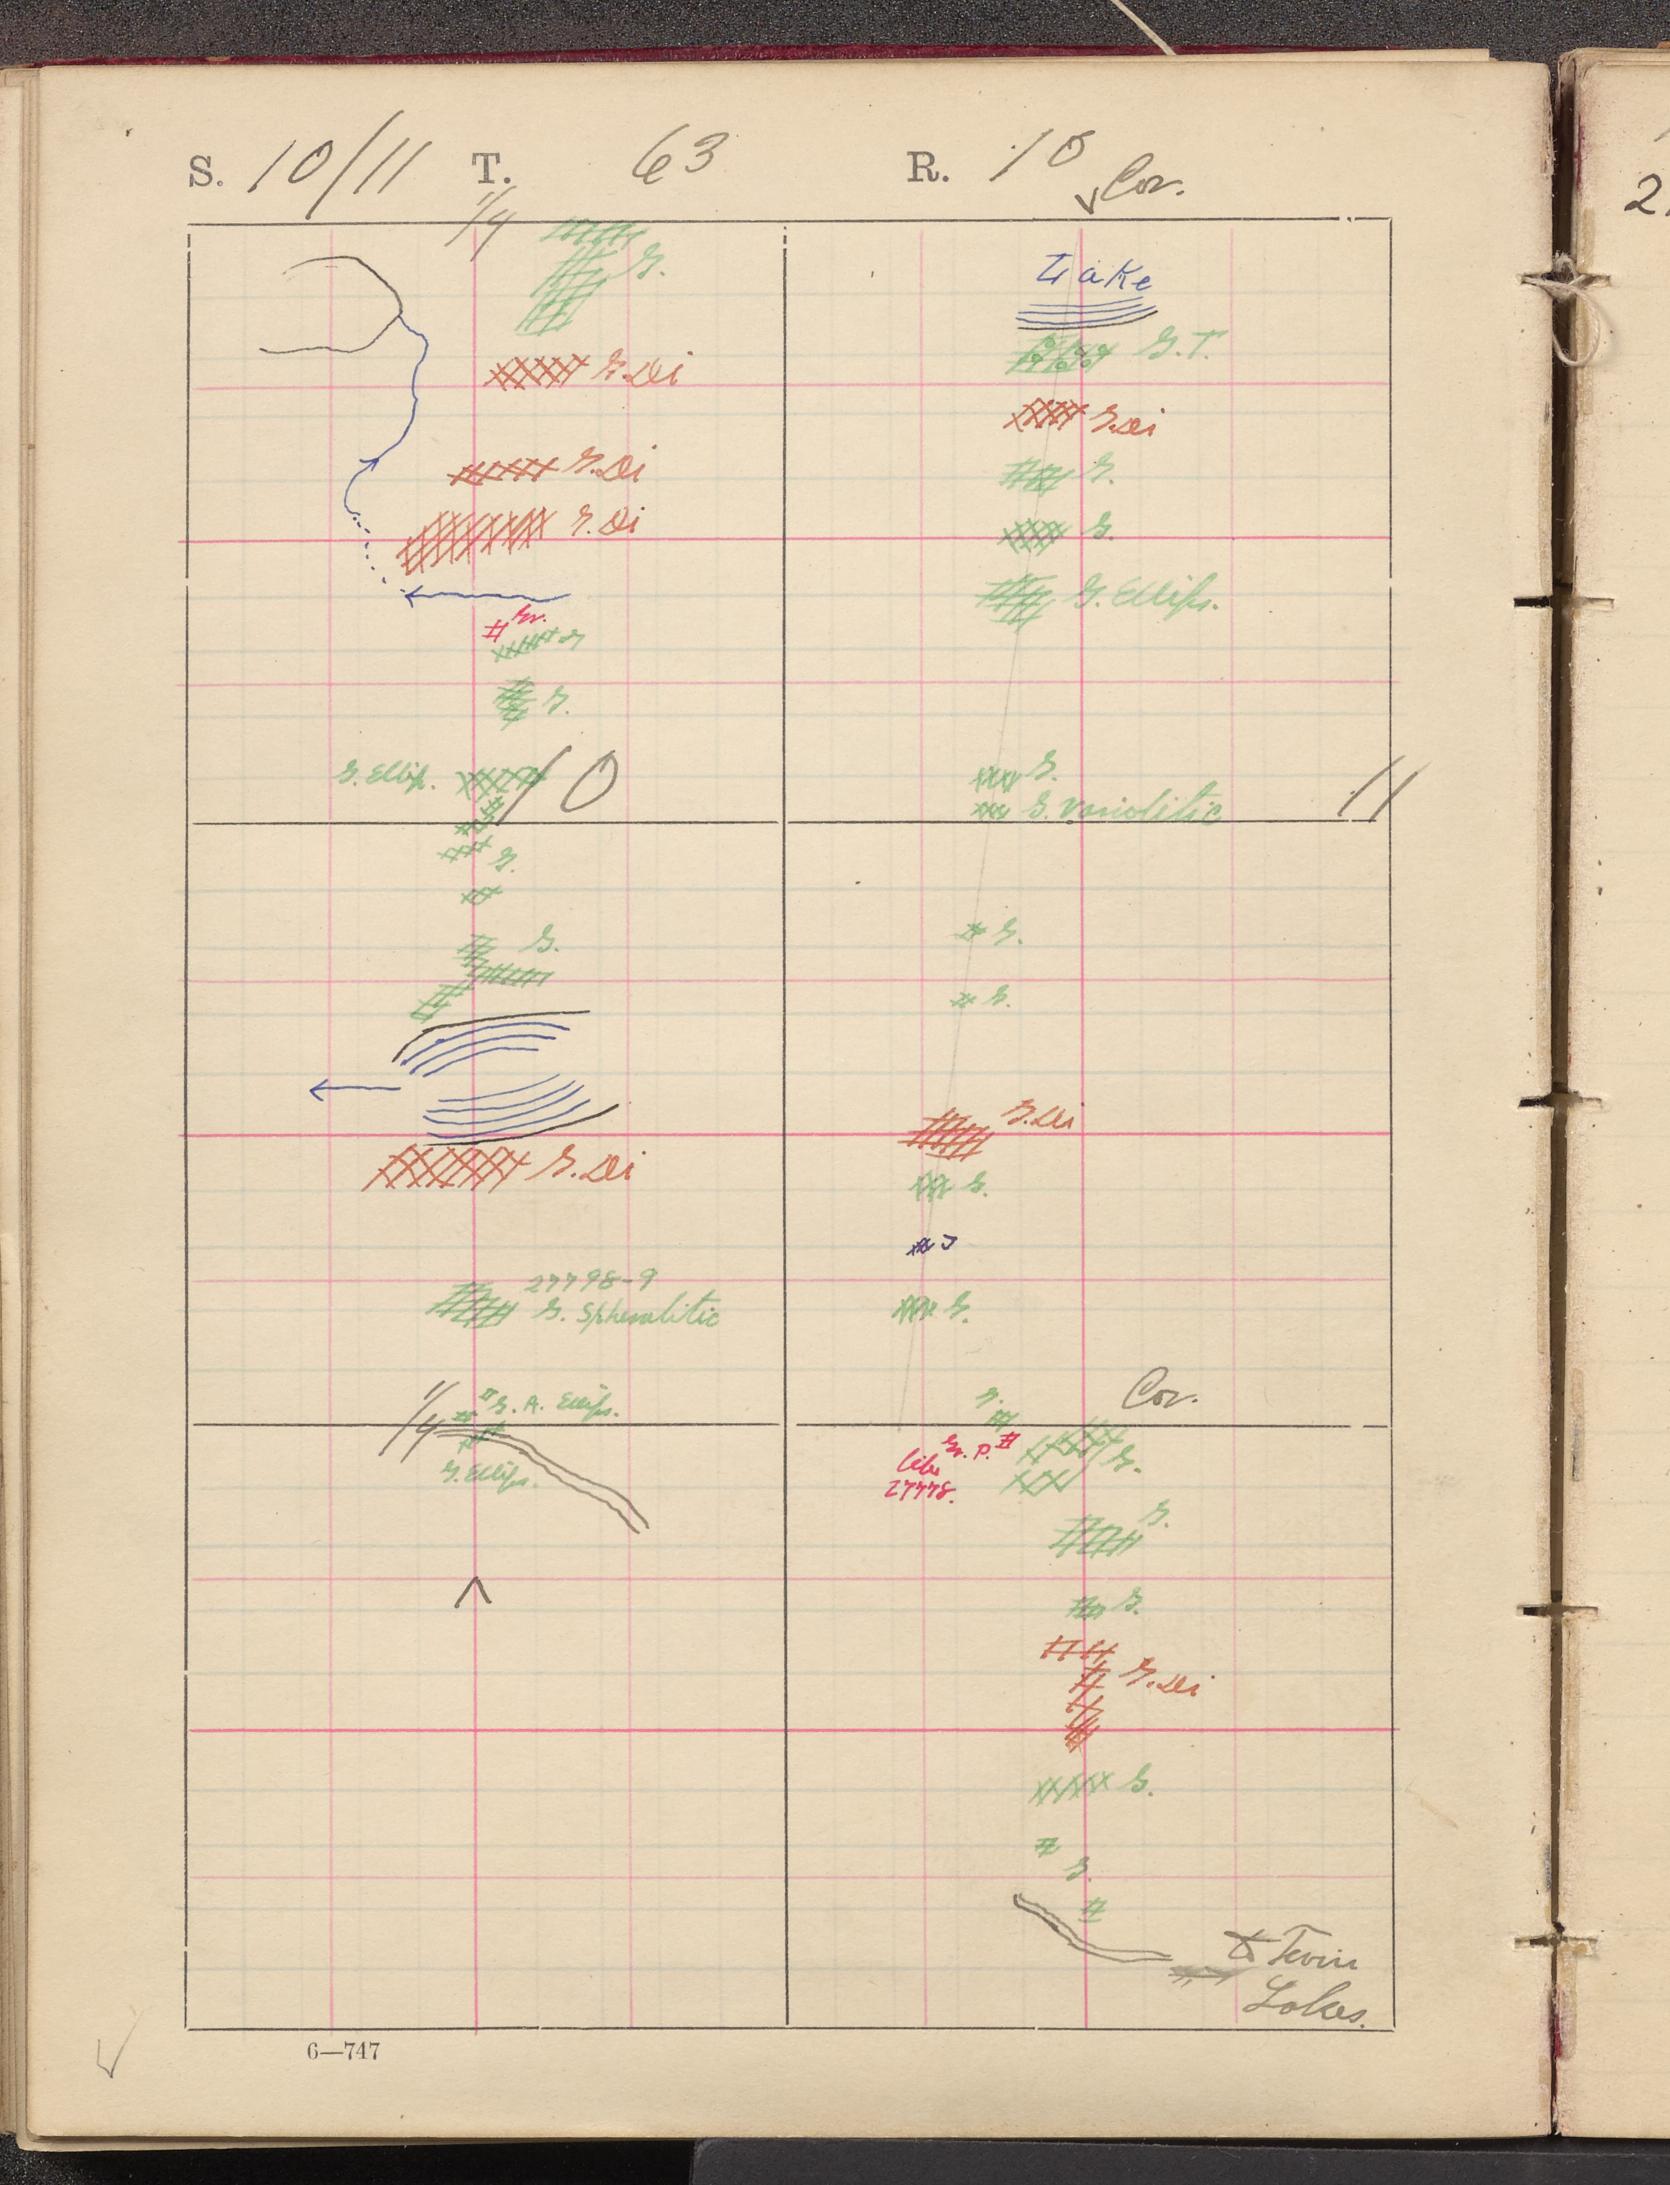 S. 10/11 T. 63 R. 10
Cor.
1/4
G.
G.Di
G.Di
G.Di
Gr.
G
G.
G. Ellip. 10
G.
G.
G.Di
27798-9
G. Spherulitic
1/4
G. A. Ellips.
G. Ellips.
Lake
G.T.
G.Di
G.
G.
G. Ellips.
G.
G. Variolitic
11
G.
G.
G.Di
G.
J
G.
Cor.
G.
Gr. P.
like
27778.
G.
G.
G.
G.Di
G.
G.
to Twin
Lakes.
6—747
2